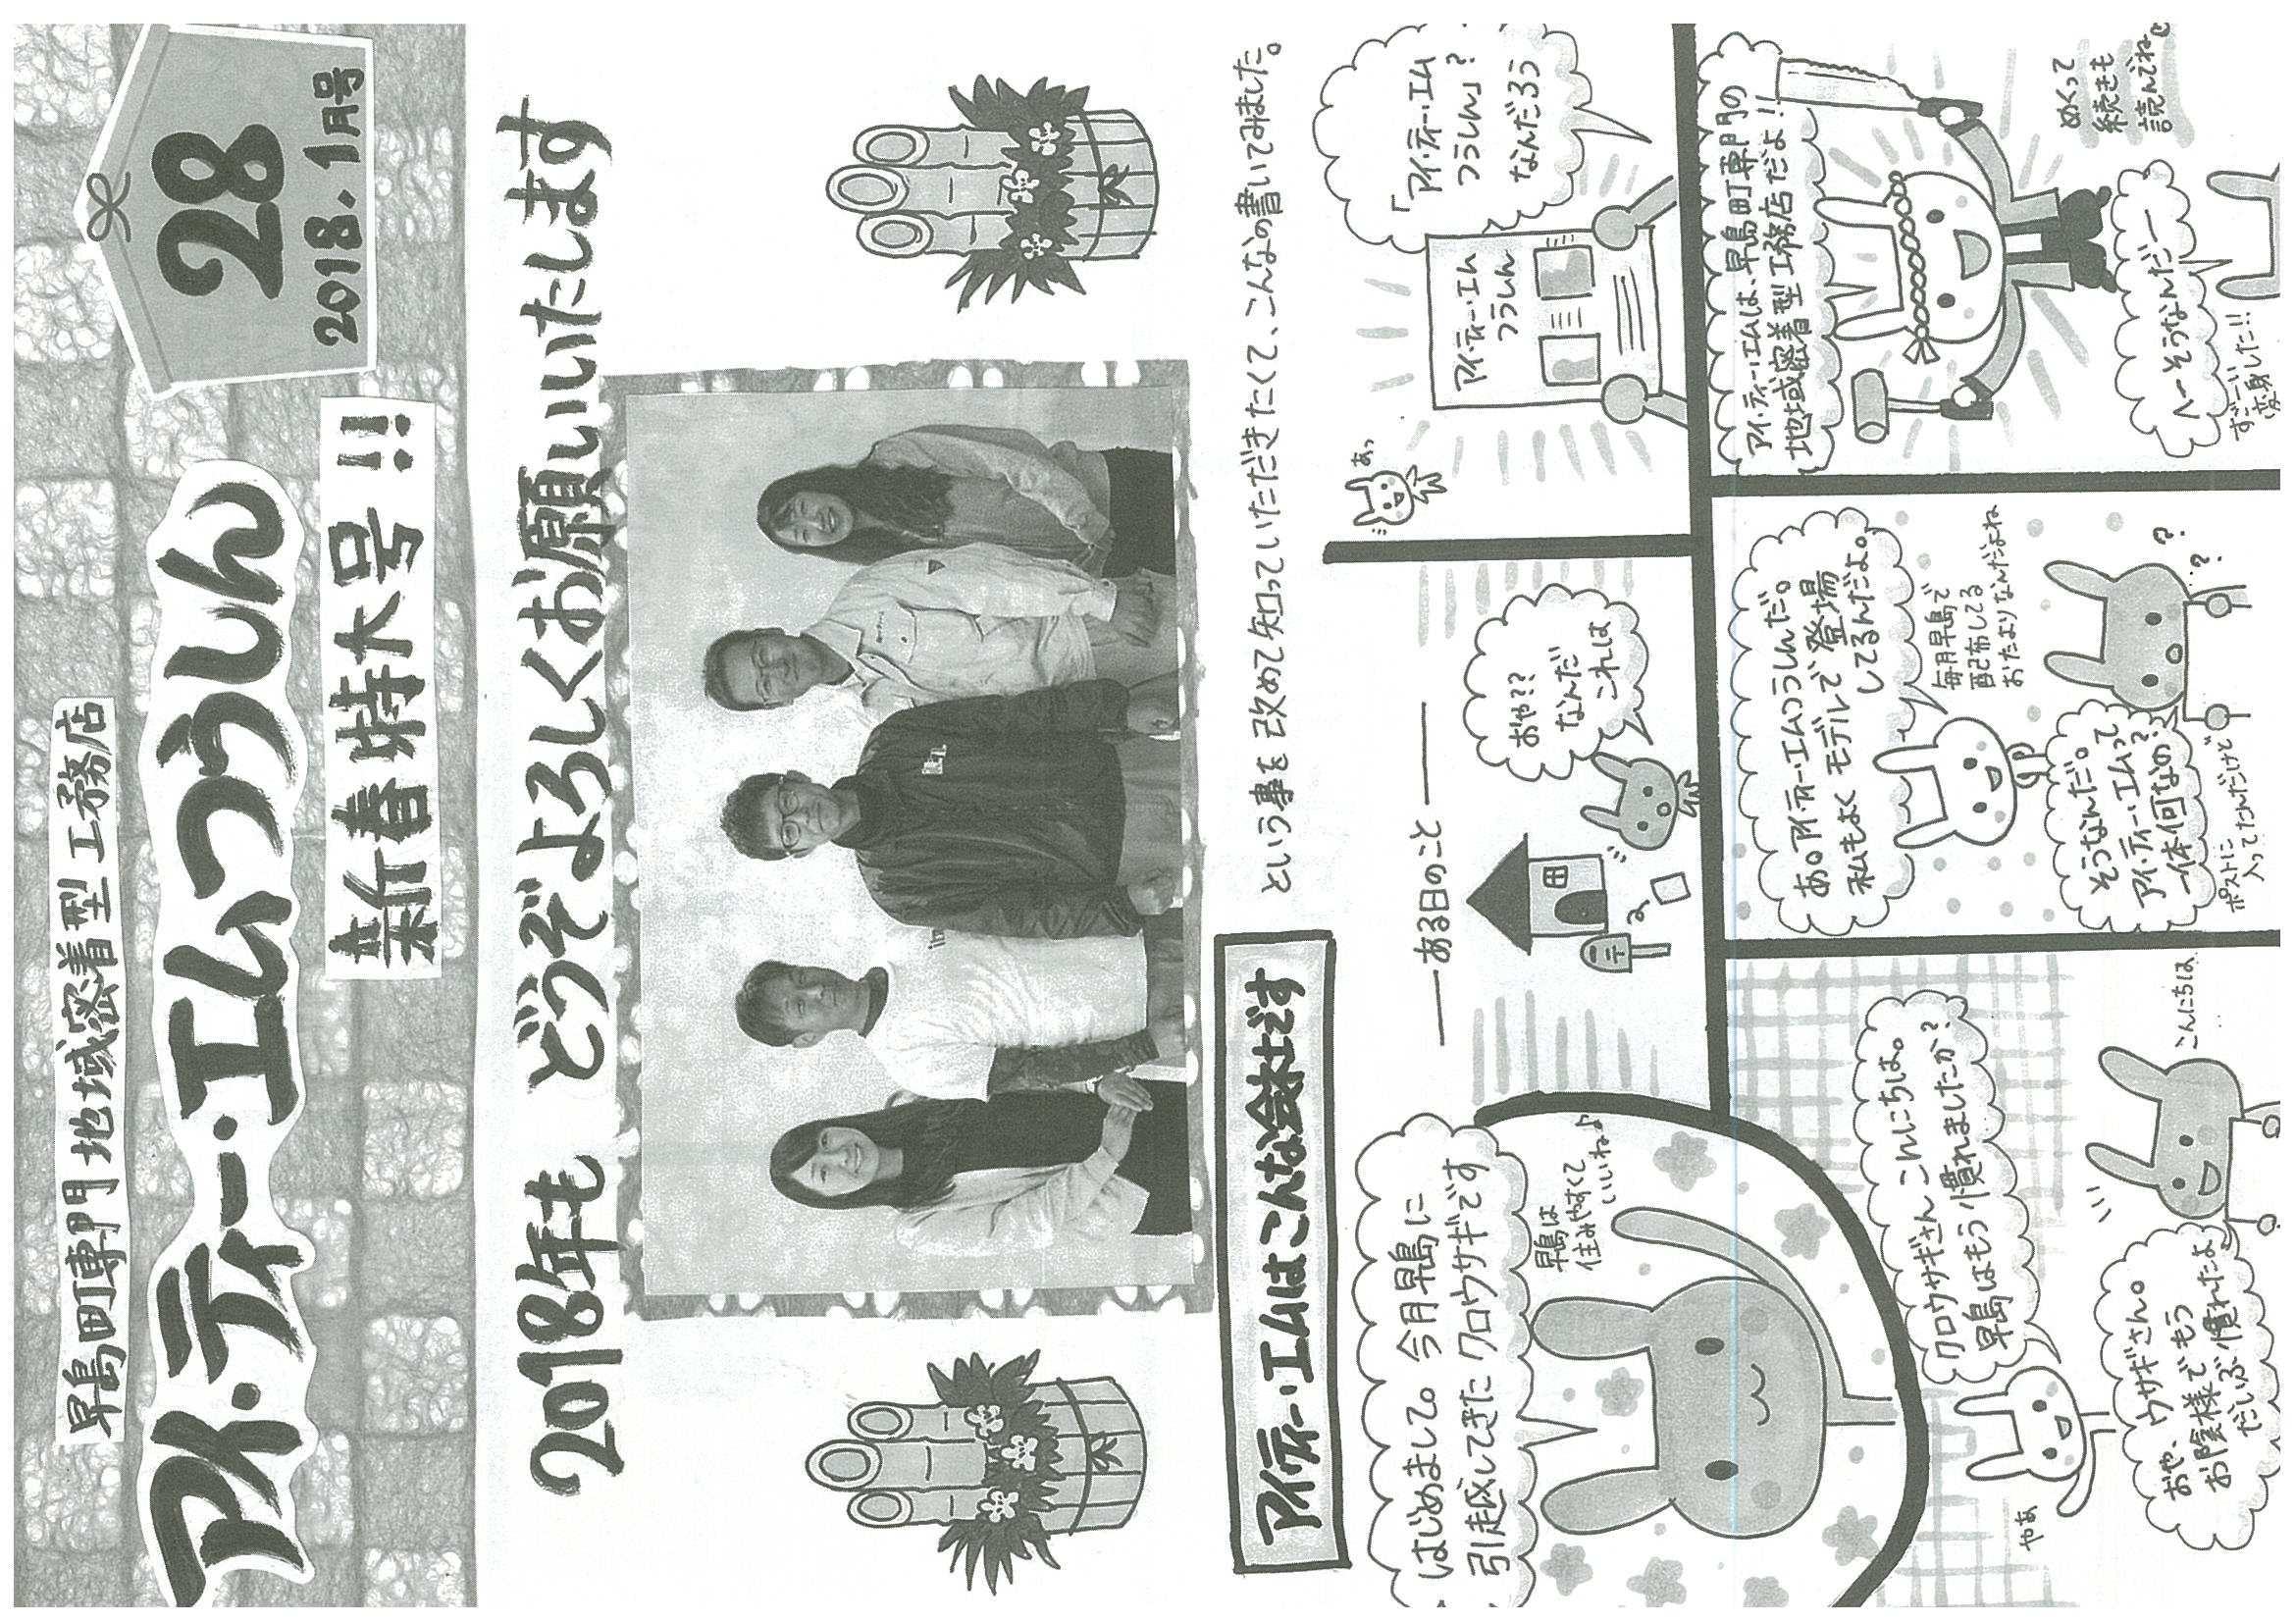 早島町専門 地域密着型 工務店
アイ・ティー・エムつうしん
新春特大号!!
28
2018.1月号
2018年も どうぞよろしくお願いいたします
アイ・ティー・エムはこんな会社です
という事を改めて知っていただきたくて、こんなの書いてみました。
はじめまして。今月早島に
引越してきたクロウサギです
早島は
住みやすくて
いいね♪
ある日のこと
おや??
なんだ
これは
あっ
アイ・ティー・エム
つうしん
「アイ・ティー・エム
つうしん」?
なんだろう
クロウサギさんこんにちは。
早島はもう慣れましたか?
やあ
こんにちは
おや、ウサギさん。
お陰様でもう
だいぶ慣れたよ
あ。アイ・ティー・エムつうしんだ。
私もよくモデルで登場
してるんだよ。
毎月早島で
配布してる
おたよりなんだよね
そうなんだ。
アイ・ティー・エムって
一体何なの?
ポストに
入ってたんだけど
?
?
アイ・ティー・エムは、早島町専門の
地域密着型工務店だよ!!
へーそうなんだー
すごーい
変身した!!
めくって
続きも
読んでね